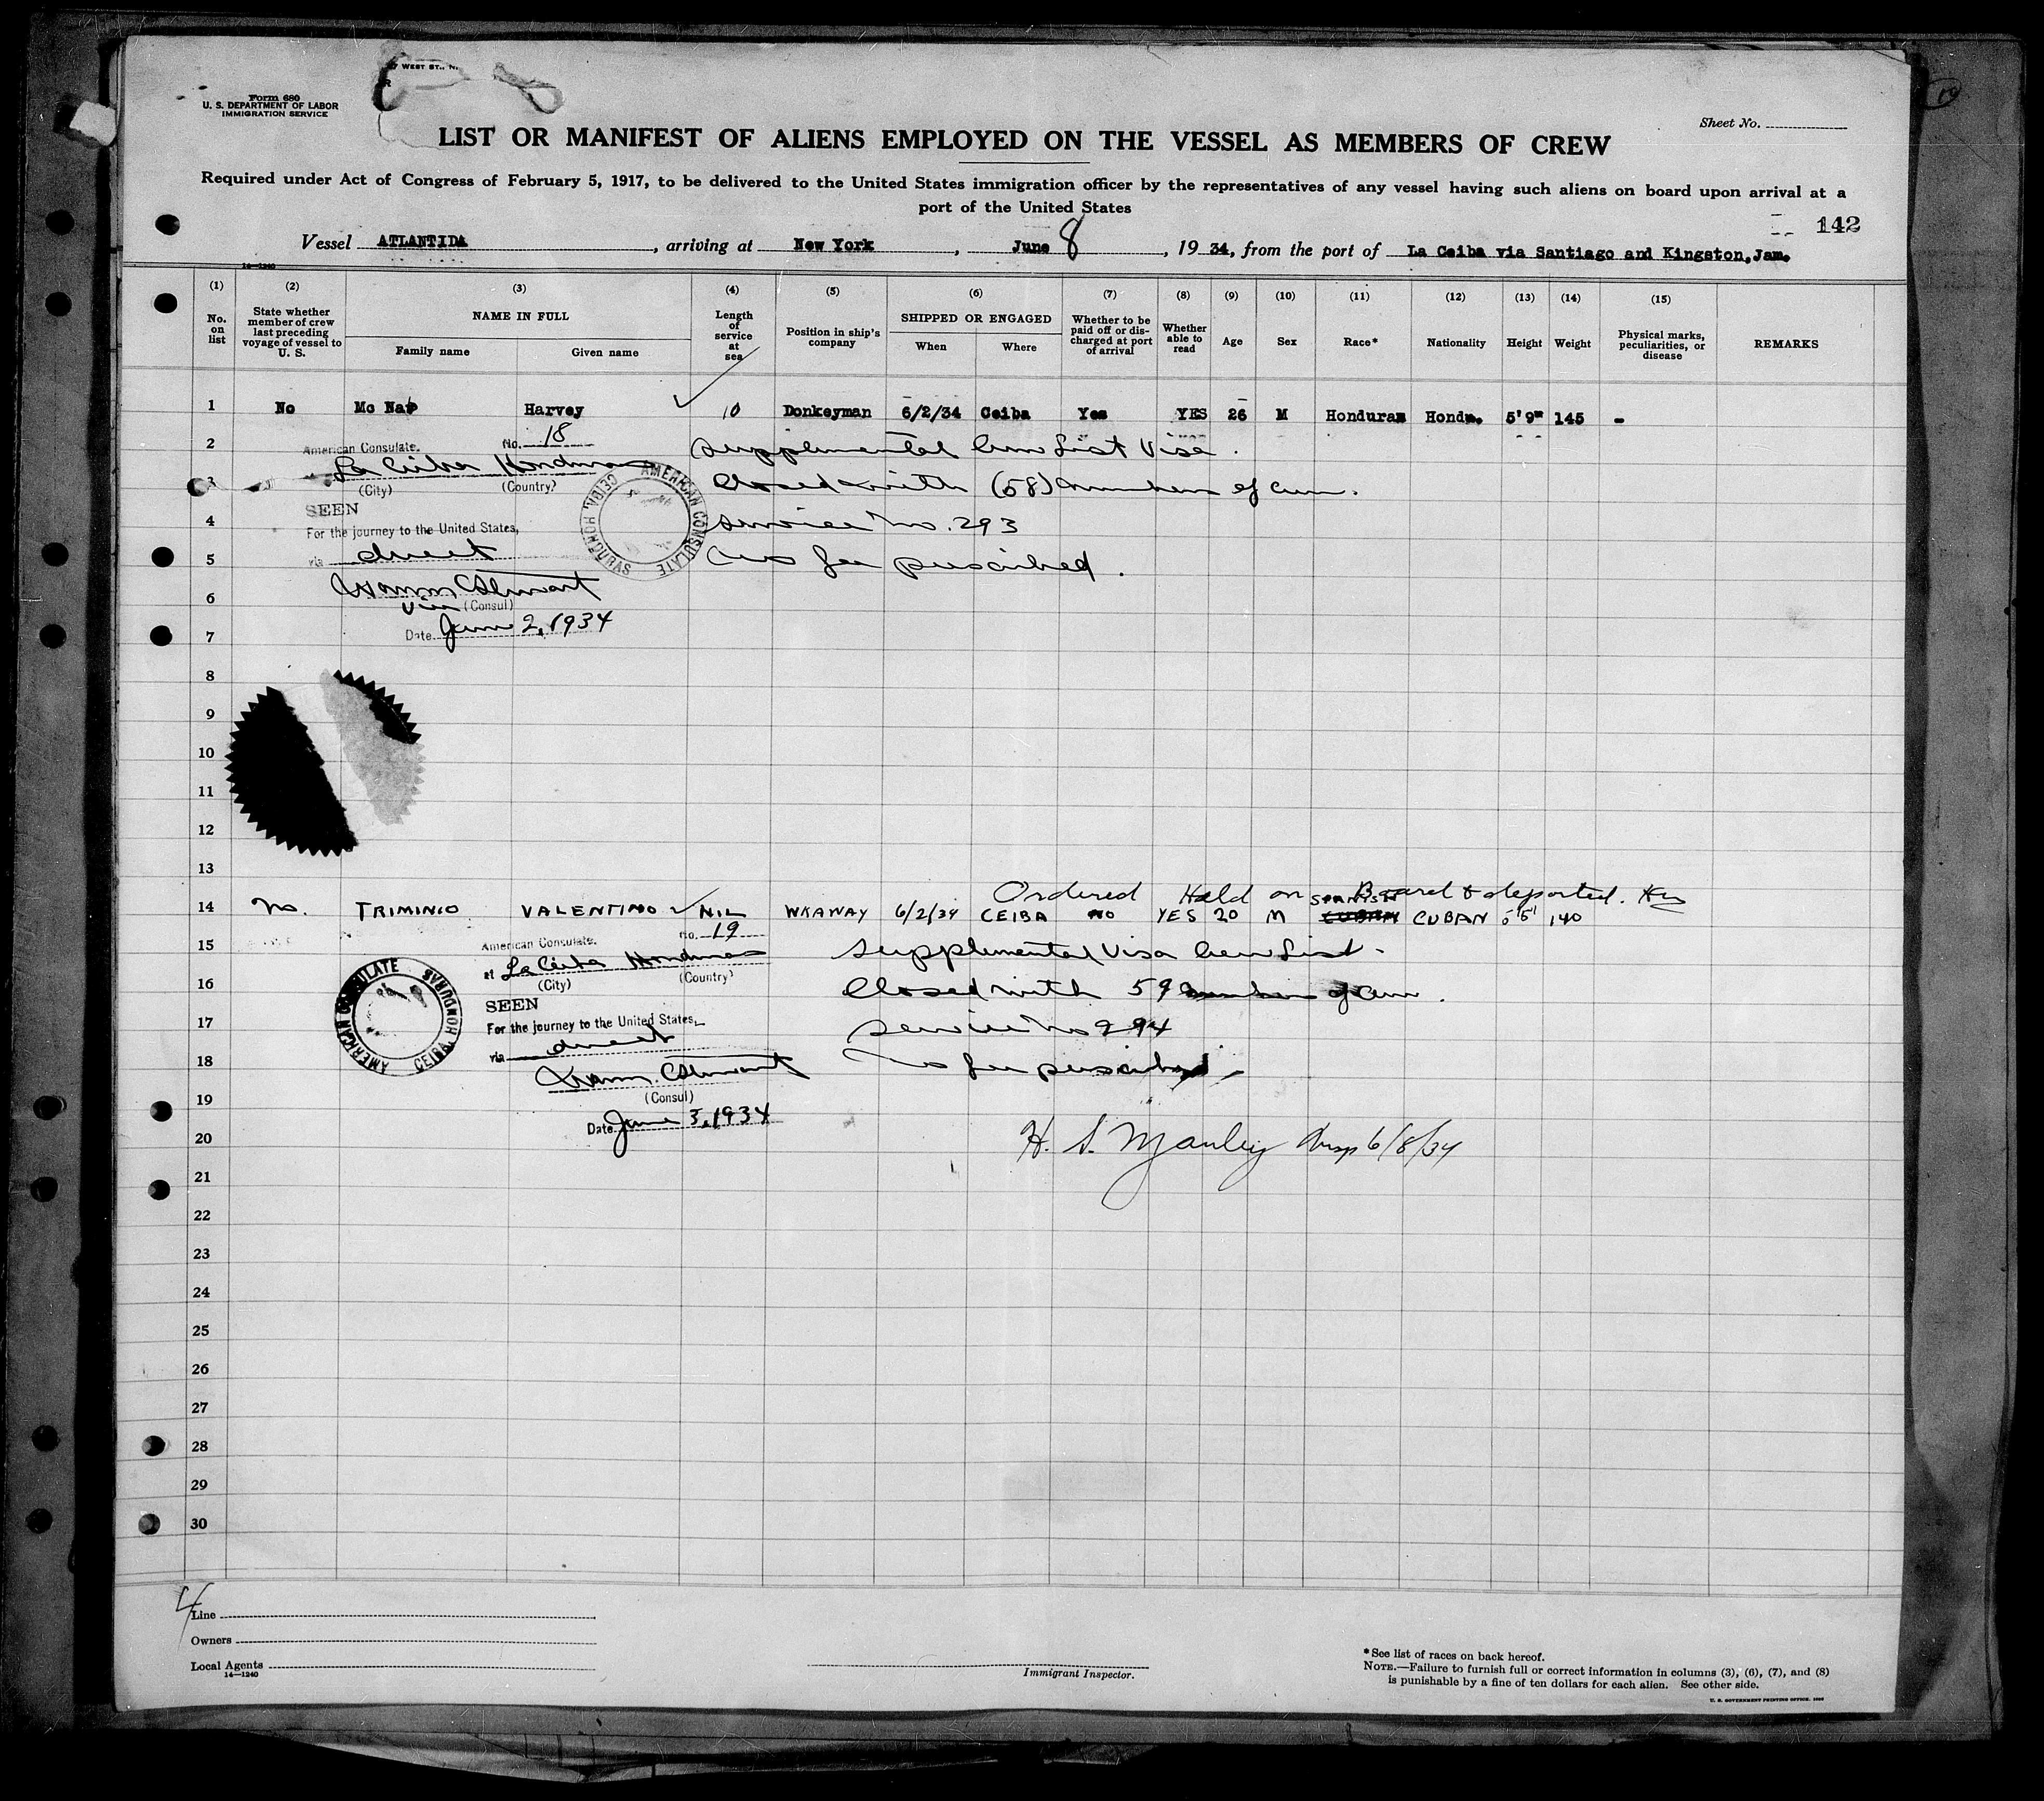 Form 680
U. S. DEPARTMENT OF LABOR
IMMIGRATION SERVICE
WEST ST.
Sheet No.
LIST OR MANIFEST OF ALIENS EMPLOYED ON THE VESSEL AS MEMBERS OF CREW
Required under Act of Congress of February 5, 1917, to be delivered to the United States immigration officer by the representatives of any vessel having such aliens on board upon arrival at a
port of the United States
142
Vessel ATLANTIDA, arriving at New York, June 8, 19 34, from the port of La Ceiba via Santiago and Kingston, Jam.
14—1240
(1) (2) (3) (4) (5) (6) (7) (8) (9) (10) (11) (12) (13) (14) (15)
No. on list
State whether member of crew last preceding voyage of vessel to U. S.
NAME IN FULL
Family name
Given name
Length of service at sea
Position in ship's company
SHIPPED OR ENGAGED
When
Where
Whether to be paid off or discharged at port of arrival
Whether able to read
Age
Sex
Race*
Nationality
Height
Weight
Physical marks, peculiarities, or disease
REMARKS
1 No Mc Nab Harvey 10 Donkeyman 6/2/34 Ceiba Yes YES 26 M Honduran Hondn. 5'9" 145 -
2
American Consulate. No. 18
Supplemental Crew List Visa.
La Ceiba Honduras
(City) (Country)
3
Closed with (58) members of crew.
AMERICAN CONSULATE CEIBA HONDURAS
SEEN
4
For the journey to the United States,
Service No. 293
via direct
5
No fee prescribed.
6
Vice (Consul)
7
Date June 2, 1934
8
9
10
11
12
13
Ordered Held on Board & deported.
14 No. TRIMINIO VALENTINO NIL WKAWAY 6/2/34 CEIBA NO YES 20 M SPANISH CUBAN CUBAN 5'5" 140
15
American Consulate. No. 19
Supplemental Visa Crew List.
at La Ceiba Honduras
(City) (Country)
16
Closed with 59 members of crew.
AMERICAN CONSULATE CEIBA HONDURAS
SEEN
17
For the journey to the United States,
Service No 294
via direct
18
No fee prescribed.
(Consul)
19
Date June 3, 1934
20
H. S. Manley Insp 6/8/34
21
22
23
24
25
26
27
28
29
30
4
Line
Owners
Local Agents
14—1240
Immigrant Inspector.
*See list of races on back hereof.
NOTE.—Failure to furnish full or correct information in columns (3), (6), (7), and (8)
is punishable by a fine of ten dollars for each alien. See other side.
U. S. GOVERNMENT PRINTING OFFICE